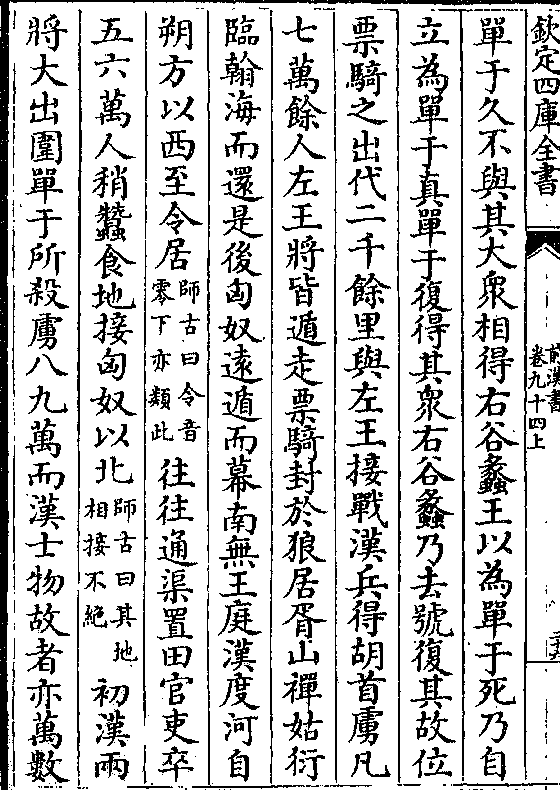 欽定四庫全書
前漢書
卷九十四上
單于久不與其大衆相得右谷蠡王以為單于死乃自
立為單于真單于復得其衆右谷蠡乃去號復其故位
票騎之出代二千餘里與左王接戰漢兵得胡首虜凡
七萬餘人左王將皆遁走票騎封於狼居胥山禪姑衍
臨翰海而還是後匈奴遠遁而幕南無王庭漢度河自
朔方以西至令居師古曰令音零下亦類此往往通渠置田官吏卒
五六萬人稍蠶食地接匈奴以北師古曰其地相接不絶初漢兩
將大出圍單于所殺虜八九萬而漢士物故者亦萬數